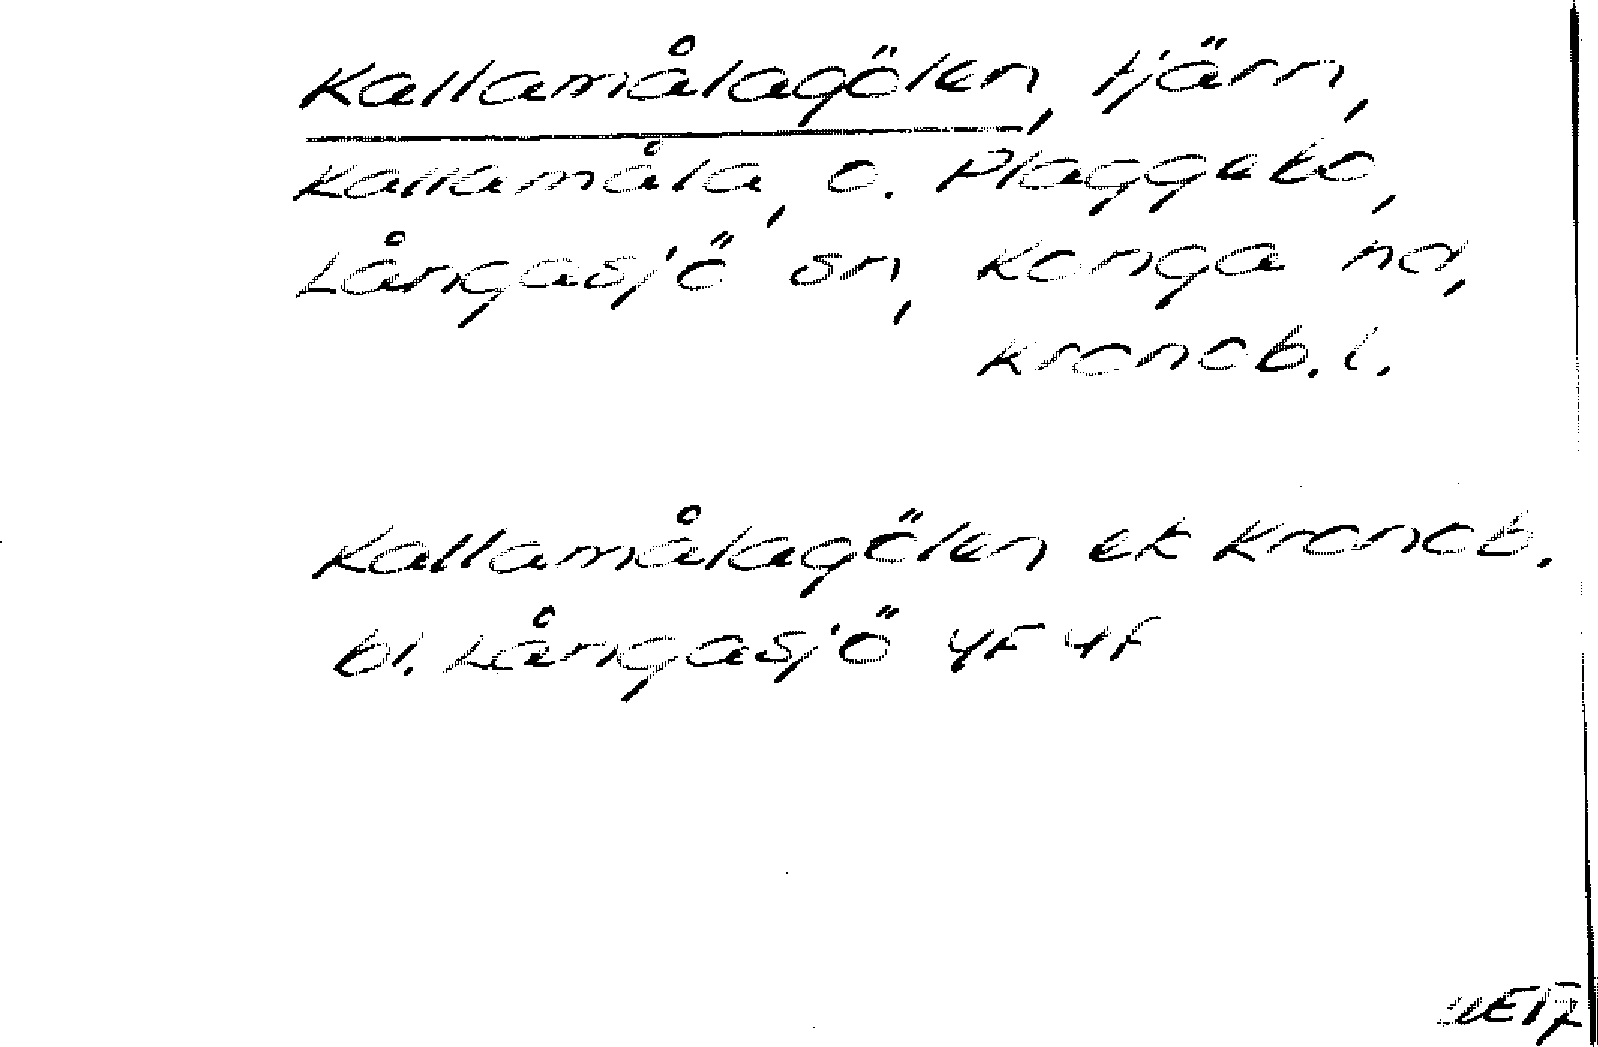 Kallamålagölen, tjärn,
Kallamåla, o. Plaggebo,
Långasjö sn, Konga hd,
Kronob. l.
Kallamålagölen ek Kronob.
bl. Långasjö 4F 4f